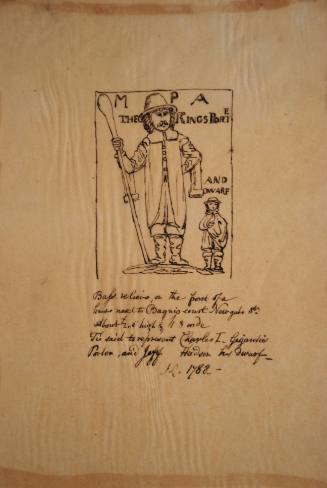 M P A
THE KINGS PORTE
AND
DWARF
Bass relievo, on the front of a
house next to Bagnig court Newgate St.
About 2.6 high &
Tis said to represent Charles I. Gigantic
Porter, and Jeff Hudson his Dwarf—
1782 —